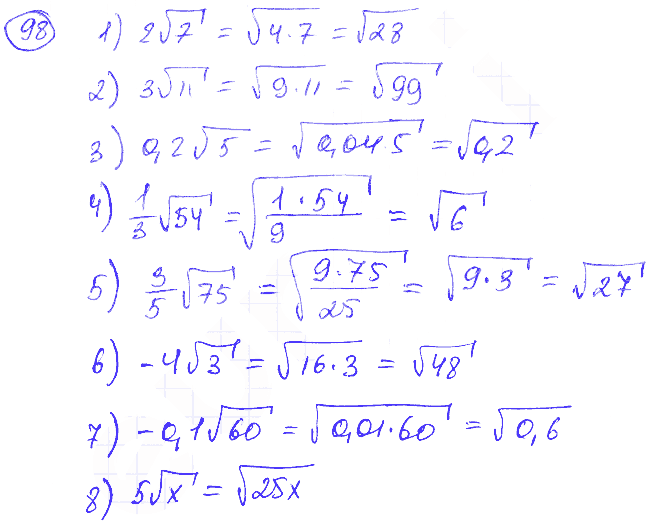 98 1) 2√7 = √4·7 = √28
2) 3√11 = √9·11 = √99
3) 0,2√5 = √0,04·5 = √0,2
4) 1/3 √54 = √(1·54/9) = √6
5) 3/5 √75 = √(9·75/25) = √9·3 = √27
6) -4√3 = √16·3 = √48
7) -0,1√60 = √0,01·60 = √0,6
8) 5√x = √25x